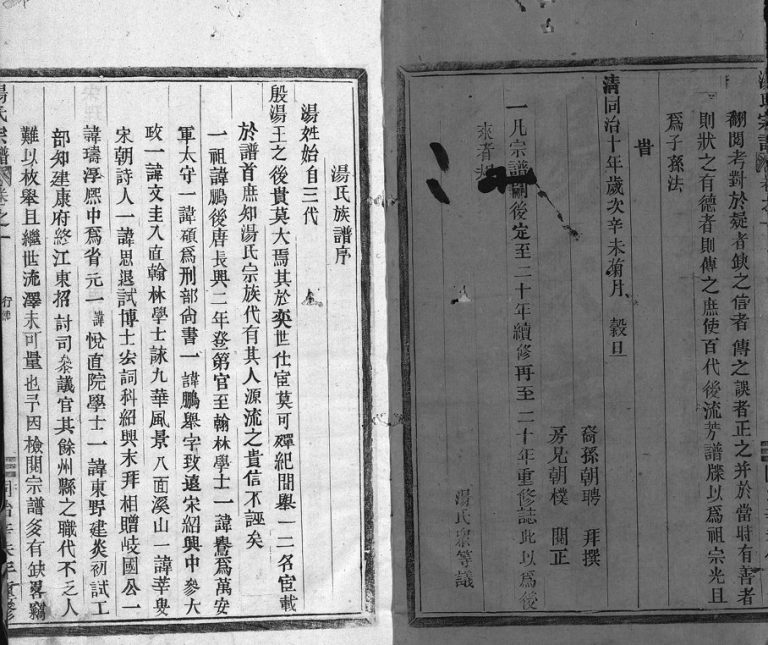 翻閱者對於疑者缺之信者傳之誤者正之并於當時有善者
則狀之有德者則傳之庶使百代後流芳譜牒以為祖宗光且
為子孫法
旹
清同治十年歲次辛未菊月 穀旦
裔孫朝聘 拜撰
房兄朝樸 閱正
一凡宗譜關後定至二十年續修再至二十年重修誌此以為後
來者
湯氏宗等議
湯氏族譜序
湯姓始自三代
殷湯王之後貴莫大焉其於奕世仕宦莫可殫紀間舉一二名宦載
於譜首庶知湯氏宗族代有其人源流之貴信不誣矣
一祖諱鵬後唐長興二年登第官至翰林學士一諱鷽為萬安
軍太守一諱碩為刑部尙書一諱鵬舉字致遠宋紹興中參大
政一諱文圭入直翰林學士詠九華風景八面溪山一諱莘叟
宋朝詩人一諱思退試博士宏詞科紹興末拜相贈岐國公一
諱璹淳熈中為省元一諱悅直院學士一諱東野建炎初試工
部知建康府終江東招討司叅議官其餘州縣之職代不乏人
難以枚舉且繼世流澤未可量也予因檢閱宗譜多有缺畧竊
湯氏宗譜 卷之一